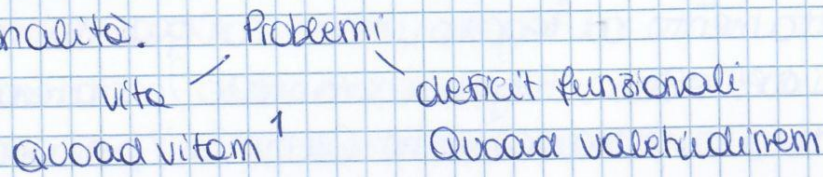 nalità. Problemi
vita deficit funzionali
Quoad vitam¹ Quoad valetudinem